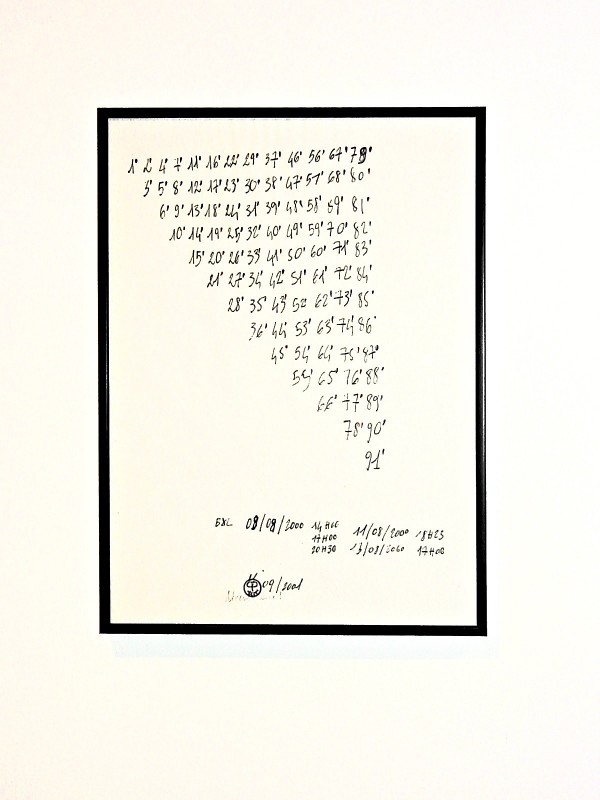 1' 2' 4' 7' 11' 16' 22' 29' 37' 46' 56' 67' 79'
3' 5' 8' 12' 17' 23' 30' 38' 47' 57' 68' 80'
6' 9' 13' 18' 24' 31' 39' 48' 58' 69' 81'
10' 14' 19' 25' 32' 40' 49' 59' 70' 82'
15' 20' 26' 33' 41' 50' 60' 71' 83'
21' 27' 34' 42' 51' 61' 72' 84'
28' 35' 43' 52' 62' 73' 85'
36' 44' 53' 63' 74' 86'
45' 54' 64' 75' 87'
55' 65' 76' 88'
66' 77' 89'
78' 90'
91'
08/08/2000 14H00
17H00 11/08/2000 18H23
20H30 13/08/2000 17H00
09/2001